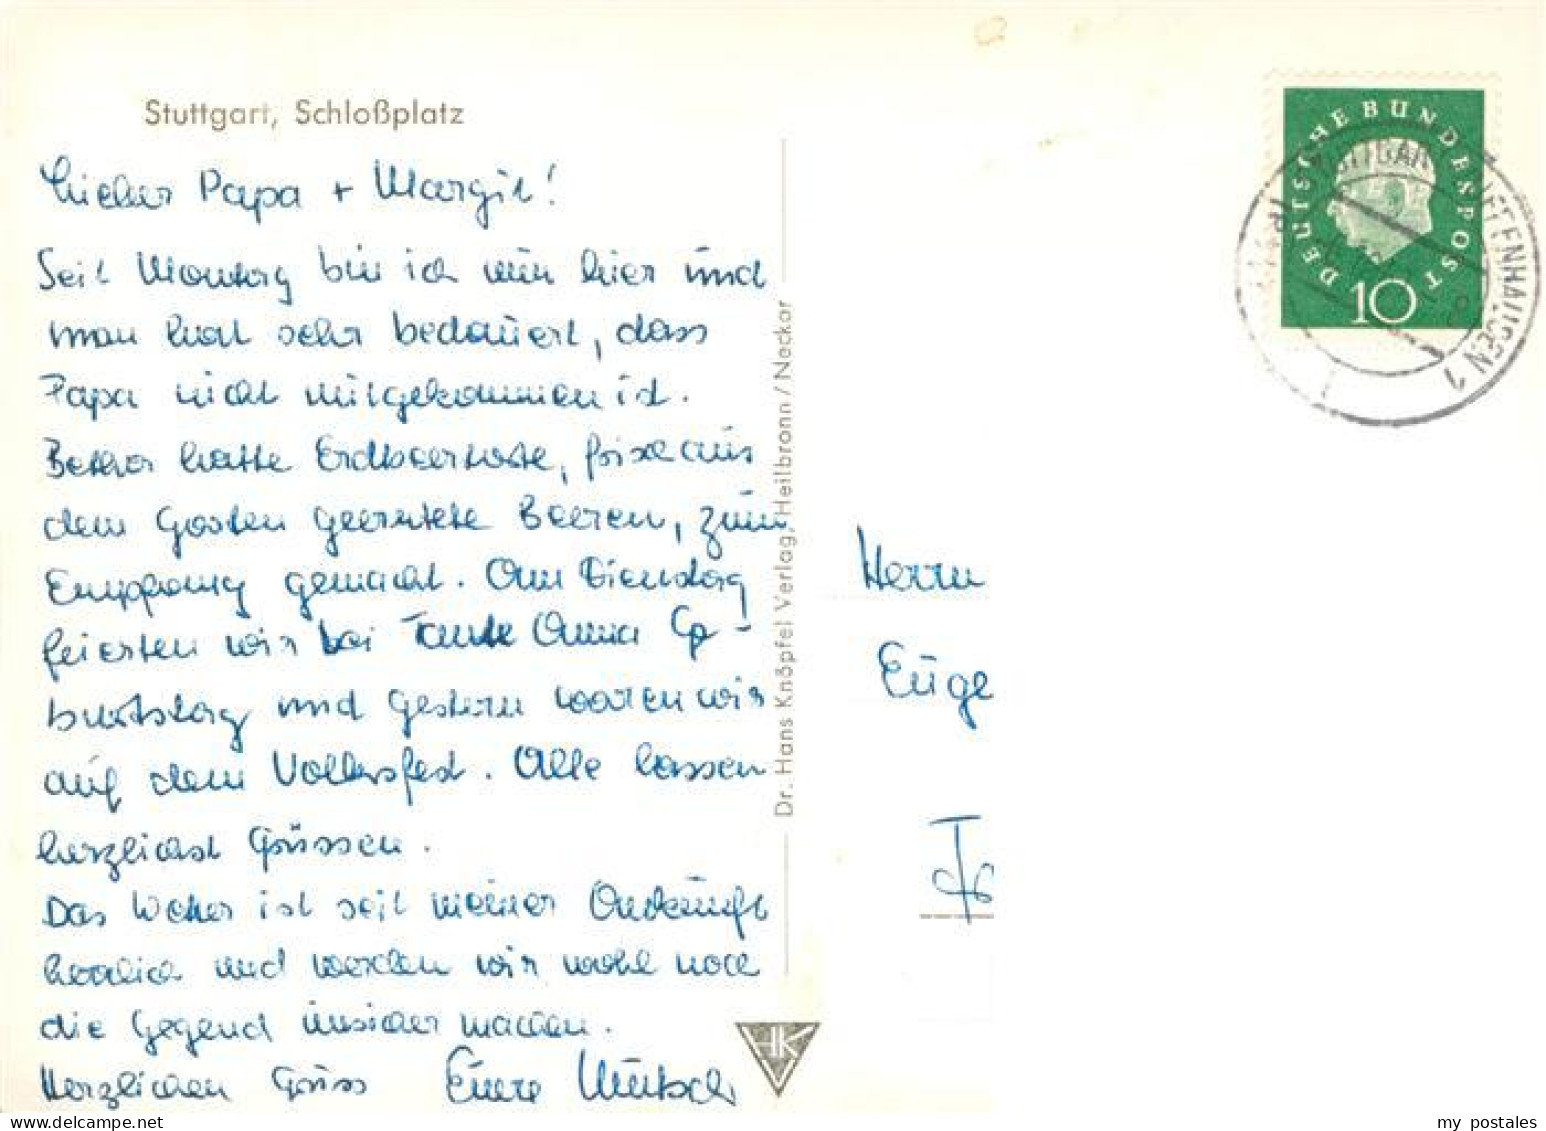 Stuttgart, Schloßplatz
Lieber Papa + Margit!
Seit Montag bin ich nun hier und
man hat sehr bedauert, dass
Papa nicht mitgekommen ist.
hatte Erdbeertorte, frische aus
dem Garten geerntete Beeren, zum
Empfang gemacht. Am Dienstag
feierten wir bei Tante Anna Ge-
burtstag und gestern waren wir
auf dem Volksfest. Alle lassen
herzlichst Grüssen.
Das Wetter ist seit meiner Ankunft
herrlich und werden wir wohl noch
die Gegend unsicher machen.
Herzlichen Gruss Eure
Dr. Hans Knöpfel Verlag, Heilbronn/Neckar
HKV
DEUTSCHE BUNDESPOST
10
STUTTGART-ZUFFENHAUSEN 1
Herrn
Euge
my postales